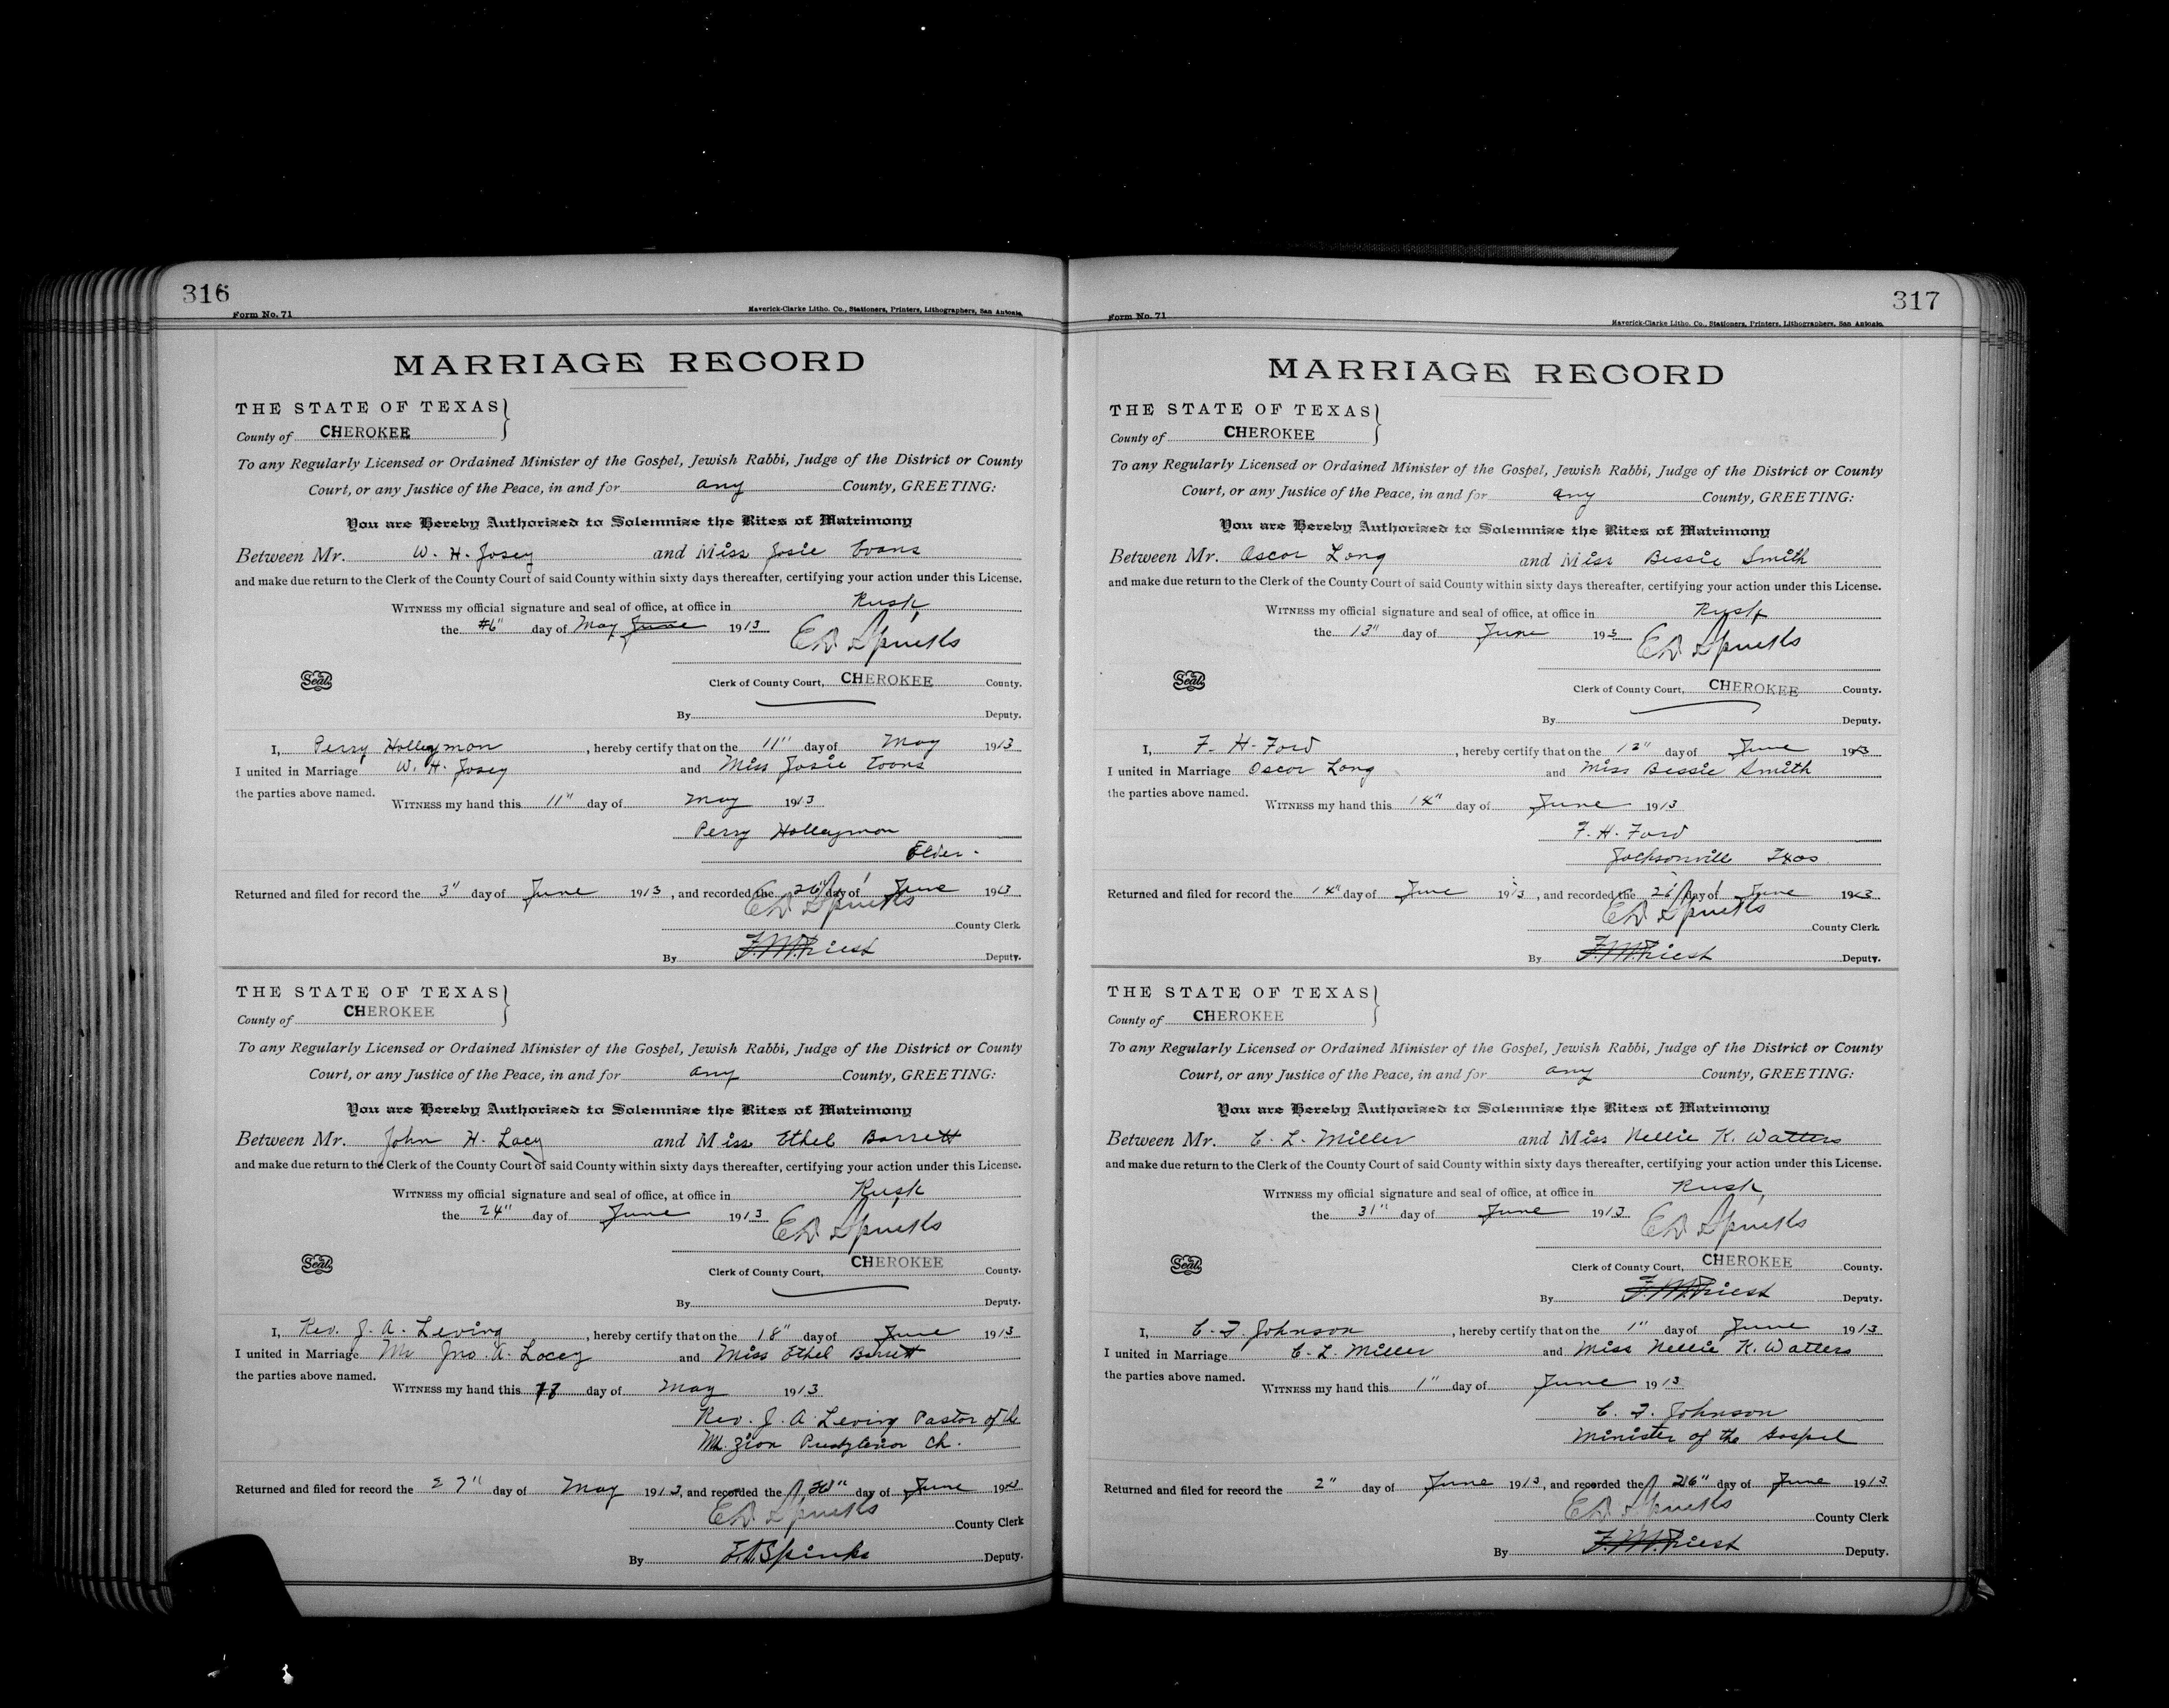 316
Form No. 71
Maverick-Clarke Litho. Co., Stationers, Printers, Lithographers, San Antonio.
MARRIAGE RECORD
THE STATE OF TEXAS
County of CHEROKEE
To any Regularly Licensed or Ordained Minister of the Gospel, Jewish Rabbi, Judge of the District or County
Court, or any Justice of the Peace, in and for any County, GREETING:
You are Hereby Authorized to Solemnize the Rites of Matrimony
Between Mr. W. H. Josey and Miss Josie Evans
and make due return to the Clerk of the County Court of said County within sixty days thereafter, certifying your action under this License.
WITNESS my official signature and seal of office, at office in Rusk,
the 6" day of May June 1913
ED Spinks
Seal
Clerk of County Court, CHEROKEE County.
By Deputy.
I, Perry Holleymon, hereby certify that on the 11" day of May 1913
I united in Marriage W. H. Josey and Miss Josie Evans
the parties above named.
WITNESS my hand this 11" day of May 1913
Perry Holleymon
Elder.
Returned and filed for record the 3" day of June 1913, and recorded the 26" day of June 1913
ED Spinks
County Clerk
By F.M. Priest Deputy.
THE STATE OF TEXAS
County of CHEROKEE
To any Regularly Licensed or Ordained Minister of the Gospel, Jewish Rabbi, Judge of the District or County
Court, or any Justice of the Peace, in and for any County, GREETING:
You are Hereby Authorized to Solemnize the Rites of Matrimony
Between Mr. John H. Lacy and Miss Ethel Barrett
and make due return to the Clerk of the County Court of said County within sixty days thereafter, certifying your action under this License.
WITNESS my official signature and seal of office, at office in Rusk
the 24" day of June 1913
ED Spinks
Seal
Clerk of County Court, CHEROKEE County.
By Deputy.
I, Rev. J. A. Leving, hereby certify that on the 18" day of June 1913
I united in Marriage Mr Jno. H. Lacey and Miss Ethel Barrett
the parties above named.
WITNESS my hand this day of May 1913
Rev. J. A. Leving Pastor of the
Mt. Zion Presbyterian Ch.
Returned and filed for record the 27" day of May 1913, and recorded the 30" day of June 19
ED Spinks
County Clerk
By E.D. Spinks Deputy.
317
Form No. 71
Maverick-Clarke Litho. Co., Stationers, Printers, Lithographers, San Antonio.
MARRIAGE RECORD
THE STATE OF TEXAS
County of CHEROKEE
To any Regularly Licensed or Ordained Minister of the Gospel, Jewish Rabbi, Judge of the District or County
Court, or any Justice of the Peace, in and for any County, GREETING:
You are Hereby Authorized to Solemnize the Rites of Matrimony
Between Mr. Oscar Long and Miss Bessie Smith
and make due return to the Clerk of the County Court of said County within sixty days thereafter, certifying your action under this License.
WITNESS my official signature and seal of office, at office in Rusk
the 13" day of June 193
ED Spinks
Seal
Clerk of County Court, CHEROKEE County.
By Deputy.
I, F. H. Ford, hereby certify that on the 13" day of June 1913
I united in Marriage Oscar Long and Miss Bessie Smith
the parties above named.
WITNESS my hand this 14" day of June 1913
F. H. Ford
Jacksonvill Texas
Returned and filed for record the 14" day of June 1913, and recorded the 26 day of June 1913
ED Spinks
County Clerk
By F.M. Priest Deputy.
THE STATE OF TEXAS
County of CHEROKEE
To any Regularly Licensed or Ordained Minister of the Gospel, Jewish Rabbi, Judge of the District or County
Court, or any Justice of the Peace, in and for any County, GREETING:
You are Hereby Authorized to Solemnize the Rites of Matrimony
Between Mr. C. L. Miller and Miss Nellie K. Watters
and make due return to the Clerk of the County Court of said County within sixty days thereafter, certifying your action under this License.
WITNESS my official signature and seal of office, at office in Rusk,
the 31" day of June 1913
ED Spinks
Seal
Clerk of County Court, CHEROKEE County.
By F.M. Priest Deputy.
I, C. F. Johnson, hereby certify that on the 1" day of June 1913
I united in Marriage C. L. Miller and Miss Nellie K. Watters
the parties above named.
WITNESS my hand this 1" day of June 1913
C. F. Johnson
Minister of the Gospel
Returned and filed for record the 2" day of June 1913, and recorded the 26" day of June 1913
ED Spinks
County Clerk
By F.M. Priest Deputy.